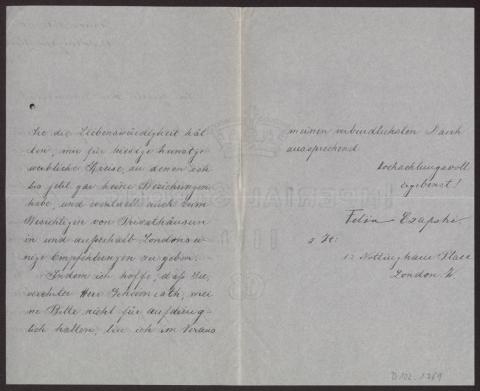 Sie die Liebenswürdigkeit hät
ten, mir für hiesige kunstge
werbliche Kreise, zu denen ich
bis jetzt gar keine Beziehungen
habe, und eventuell auch zum
Besichtigen von Privathäusern
in und ausserhalb Londons ei-
nige Empfehlungen zu geben.
Indem ich hoffe, dass Sie,
verehrter Herr Geheimrath, mei
ne Bitte nicht für aufdring-
lich halten, bin ich im Voraus
meinen verbindlichsten Dank
aussprechend
hochachtungsvoll
ergebenst!
Felix
z. Zt:
12 Nottingham Place
London W.
D 102. 1269